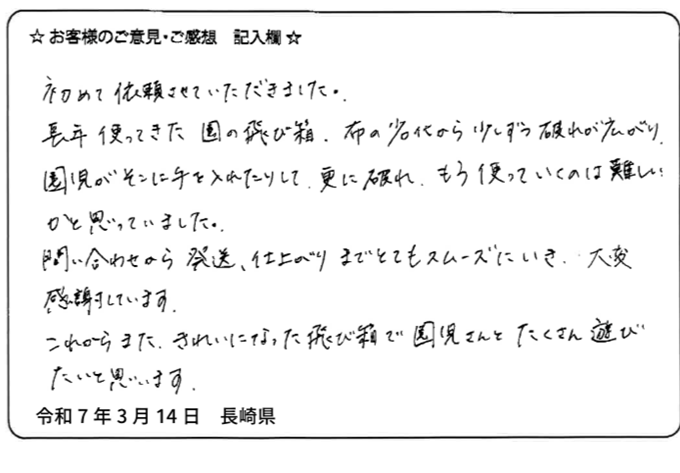 ☆お客様のご意見・ご感想 記入欄☆
初めて依頼させていただきました。
長年使ってきた園の飛び箱、布の劣化から少しずつ破れが広がり、
園児がそこに手を入れたりして、更に破れ、もう使っていくのは難しい
かと思っていました。
問い合わせから発送、仕上がりまでとてもスムーズにいき、大変
感謝しています。
これからまた、きれいになった飛び箱で園児さんとたくさん遊び
たいと思います。
令和7年3月14日 長崎県